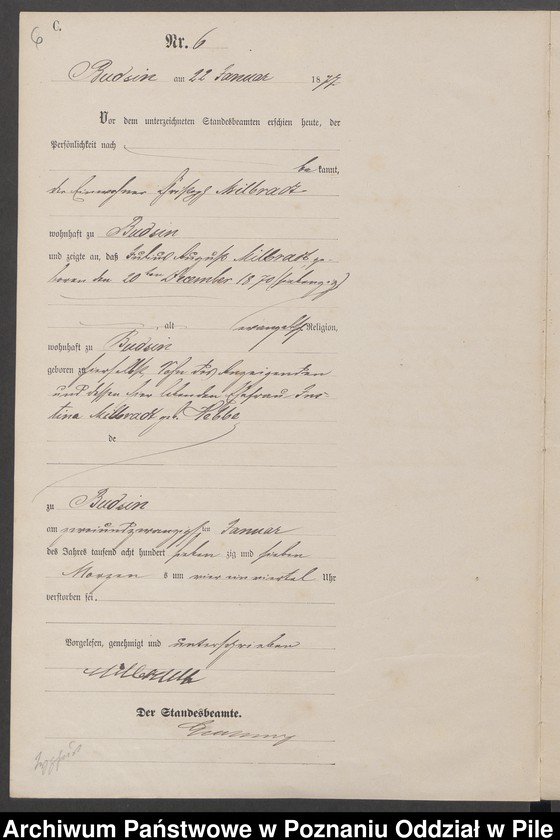 6
C.
Nr. 6
Budsin am 22 Januar 1877
Vor dem unterzeichneten Standesbeamten erschien heute, der
Persönlichkeit nach
bekannt,
der Einwohner Christoph Milbradt
wohnhaft zu Budsin
und zeigte an, daß Julius August Milbradt ge-
boren den 20ten December 1870 (siebenzig)
, alt evangelisch Religion,
wohnhaft zu Budsin
geboren zu hierselbst, Sohn des Anzeigenden
und dessen hier lebenden Ehefrau
Milbradt geb.
de
zu Budsin
am zweiundzwanzigsten Januar
des Jahres tausend acht hundert sieben zig und sieben
Morgen s um vier ein viertel Uhr
verstorben sei.
Vorgelesen, genehmigt und unterschrieben
Der Standesbeamte.
Archiwum Państwowe w Poznaniu Oddział w Pile